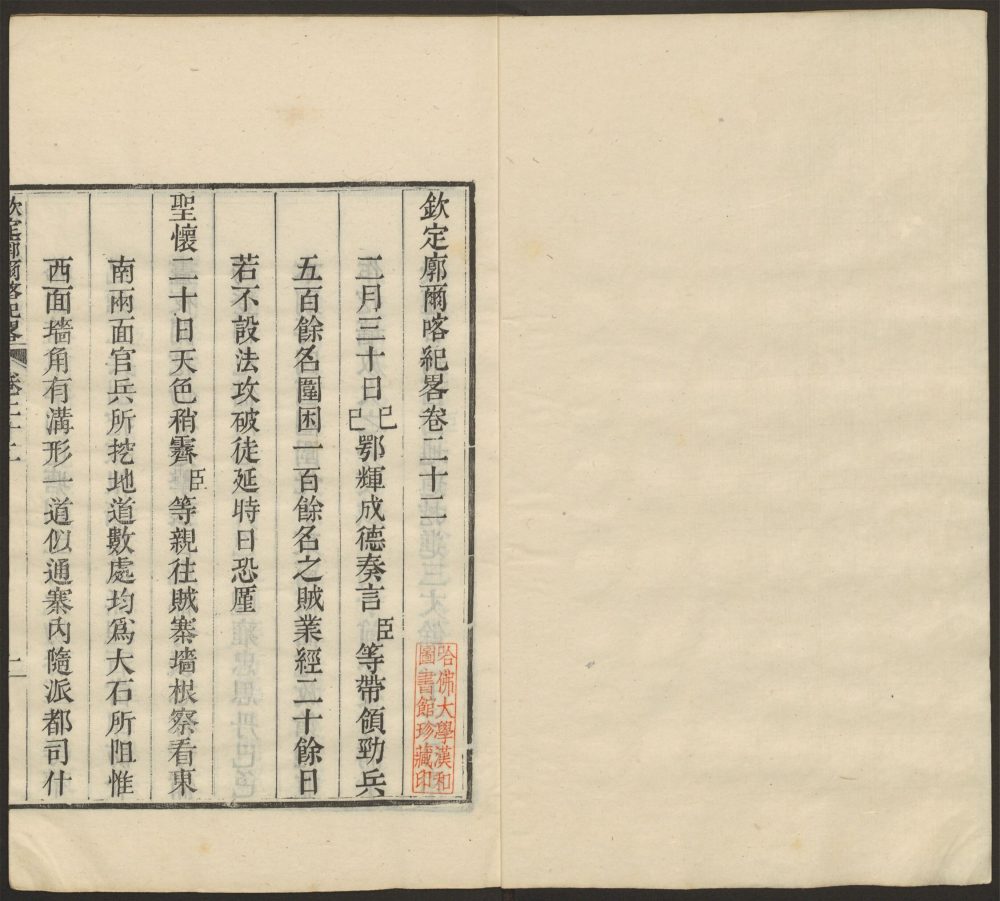 欽定廓爾喀紀畧卷二十二
二月三十日己巳鄂輝成德奏言臣等帶領勁兵
五百餘名圍困一百餘名之賊業經二十餘日
若不設法攻破徒延時日恐厪
聖懷二十日天色稍霽臣等親往賊寨墻根察看東
南兩面官兵所挖地道數處均爲大石所阻惟
西面墻角有溝形一道似通寨內隨派都司什
欽定廓爾喀紀畧 卷二十二 一
哈佛大學漢和
圖書館珍藏印